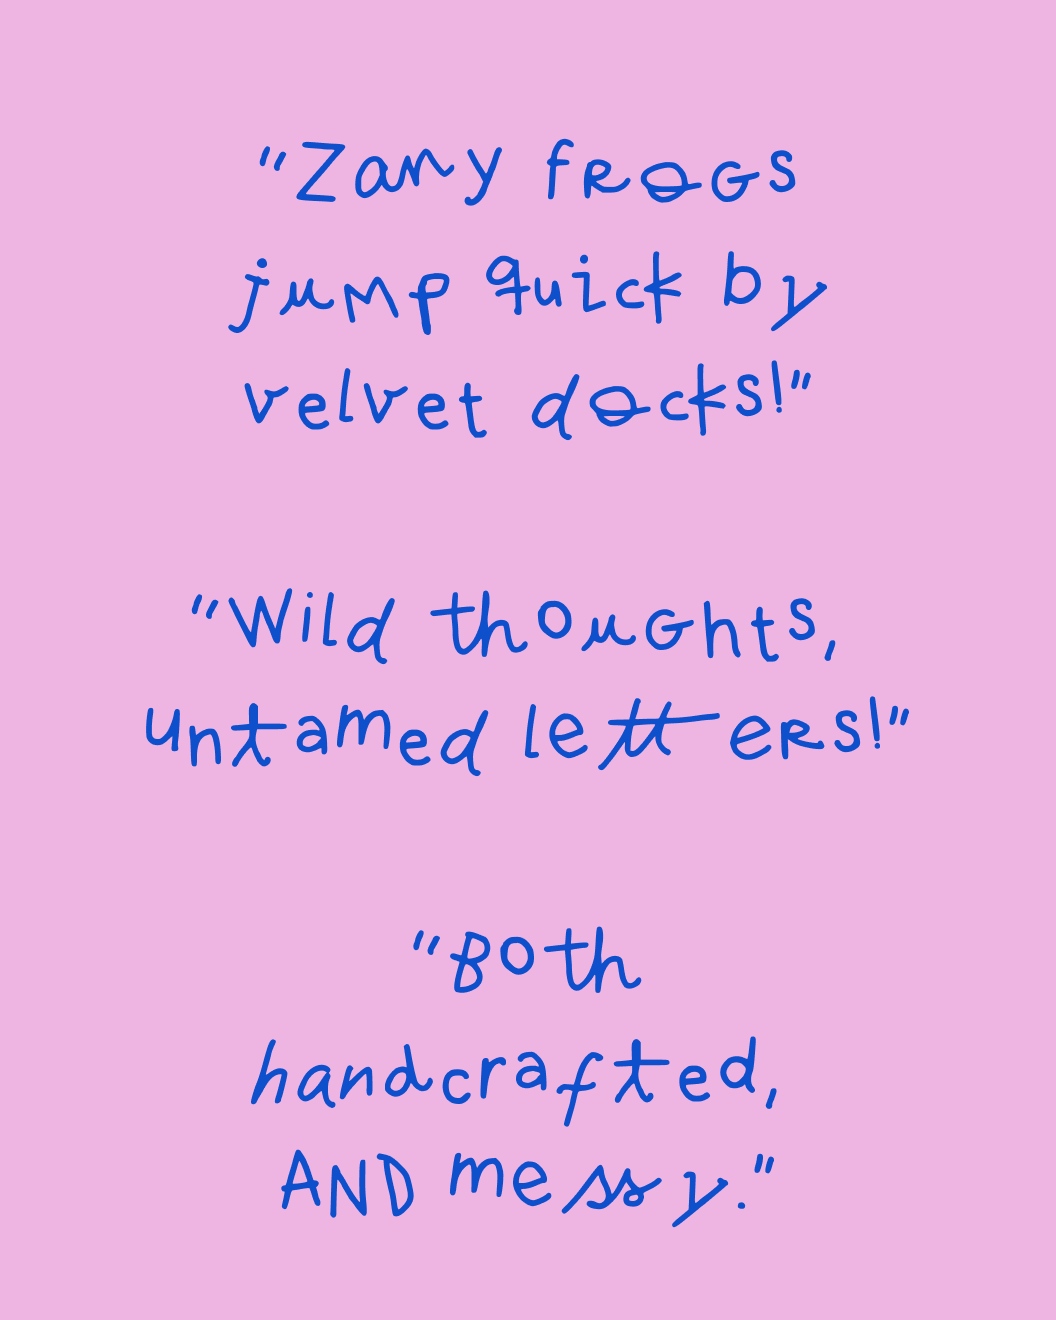 "Zany frogs
jump quick by
velvet docks!"
"Wild thoughts,
untamed letters!"
"Both
handcrafted,
AND messy."